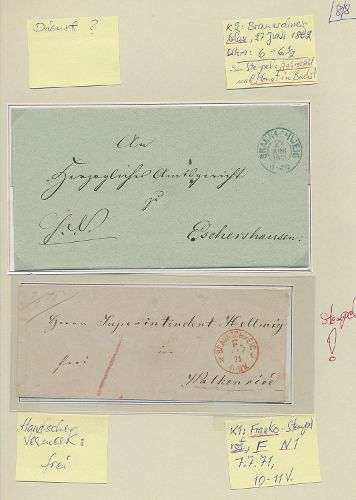 878
Dienst ?
K2: Braunschweig
blau, 27 Juni 1882
Uhr: 6 - 6 1/2
Im Stempel: Jahreszahl
und Monat in Buchst.
An
Herzogliches Amtsgericht
zu
Eschershausen.
BRAUNSCHWEIG
27
JUNI
Herrn Superintendent Hellwig
frei
in
Walkenried
BRAUNSCHWEIG
71
Stempel
!
Handschr.
Vermerk:
frei
K1: Franko-Stempel
rot, F N1
7.7.71,
10-11V.